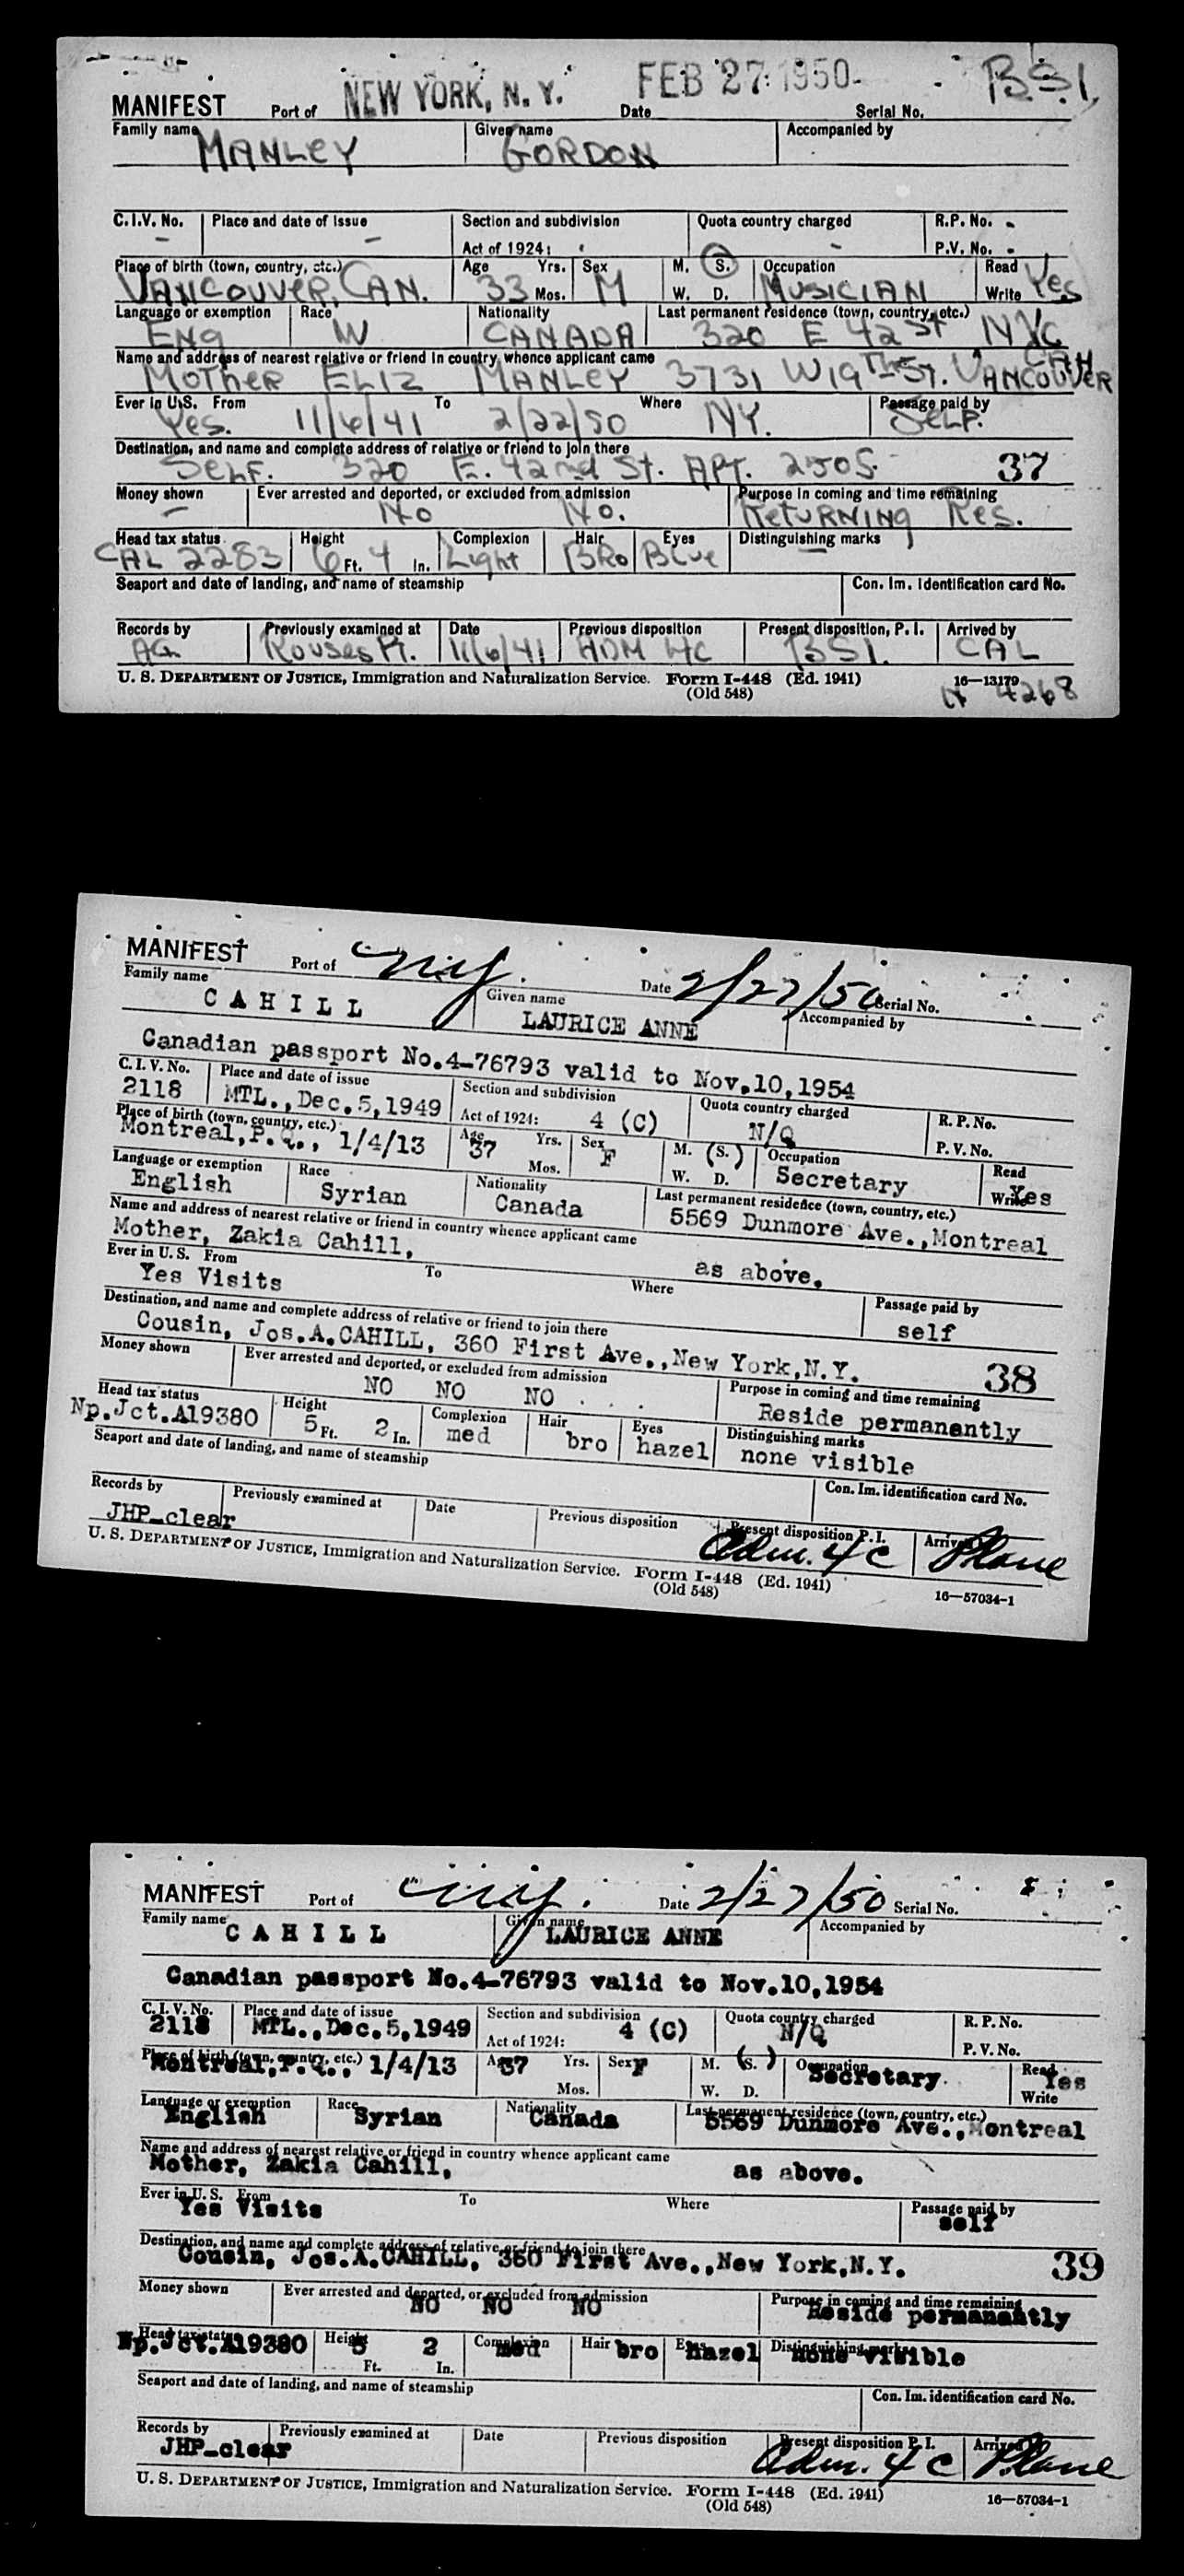 MANIFEST Port of NEW YORK, N. Y. FEB 27 1950 Date Serial No. B.S.I.
Family name MANLEY Given name GORDON Accompanied by
C.I.V. No. Place and date of issue Section and subdivision Quota country charged R.P. No. -
- - Act of 1924: - P.V. No. -
Place of birth (town, country, etc.) Age Yrs. Sex M. S. Occupation Read Yes
VANCOUVER, CAN. 33 Mos. M W. D. MUSICIAN Write
Language or exemption Race Nationality Last permanent residence (town, country, etc.)
ENG W CANADA 320 E 42 St NYC
Name and address of nearest relative or friend in country whence applicant came
MOTHER ELIZ MANLEY 3731 W 19TH ST. VANCOUVER CAN
Ever in U.S. From To Where Passage paid by
Yes. 11/6/41 2/22/50 N.Y. SELF.
Destination, and name and complete address of relative or friend to join there
SELF. 320 E. 42nd St. APT. 2505. 37
Money shown Ever arrested and deported, or excluded from admission Purpose in coming and time remaining
- No No. RETURNING Res.
Head tax status Height Complexion Hair Eyes Distinguishing marks
CAL 2283 6 Ft. 4 In. Light BRO Blue -
Seaport and date of landing, and name of steamship Con. Im. Identification card No.
Records by Previously examined at Date Previous disposition Present disposition, P. I. Arrived by
AG Rouses Pt. 11/6/41 ADM 4C BSI. CAL
U. S. DEPARTMENT OF JUSTICE, Immigration and Naturalization Service. Form I-448 (Ed. 1941) 16—13179
(Old 548) 4268
MANIFEST Port of NY. Date 2/27/50 Serial No.
Family name Given name Accompanied by
CAHILL LAURICE ANNE
Canadian passport No.4-76793 valid to Nov.10,1954
C. I. V. No. Place and date of issue Section and subdivision Quota country charged R. P. No.
2118 MTL.,Dec.5,1949 Act of 1924: 4 (C) N/Q P. V. No.
Place of birth (town, country, etc.) Age Yrs. Sex M. (S.) Occupation Read
Montreal,P.Q., 1/4/13 37 Mos. F W. D. Secretary Write Yes
Language or exemption Race Nationality Last permanent residence (town, country, etc.)
English Syrian Canada 5569 Dunmore Ave.,Montreal
Name and address of nearest relative or friend in country whence applicant came
Mother, Zakia Cahill, as above.
Ever in U. S. From To Where Passage paid by
Yes Visits self
Destination, and name and complete address of relative or friend to join there
Cousin, Jos.A.CAHILL, 360 First Ave.,New York,N.Y. 38
Money shown Ever arrested and deported, or excluded from admission Purpose in coming and time remaining
NO NO NO . . . Reside permanently
Head tax status Height Complexion Hair Eyes Distinguishing marks
Np.Jct.A19380 5 Ft. 2 In. med bro hazel none visible
Seaport and date of landing, and name of steamship Con. Im. identification card No.
Records by Previously examined at Date Previous disposition Present disposition P. I. Arrived
JHP-clear Adm. 4 C Plane
U. S. DEPARTMENT OF JUSTICE, Immigration and Naturalization Service. Form I-448 (Ed. 1941) 16—57034-1
(Old 548)
MANIFEST Port of NY. Date 2/27/50 Serial No.
Family name Given name Accompanied by
CAHILL LAURICE ANNE
Canadian passport No.4-76793 valid to Nov.10,1954
C. I. V. No. Place and date of issue Section and subdivision Quota country charged R. P. No.
2118 MTL.,Dec.5,1949 Act of 1924: 4 (C) N/Q P. V. No.
Place of birth (town, country, etc.) Age Yrs. Sex M. (S.) Occupation Read
Montreal,P.Q., 1/4/13 37 Mos. F W. D. Secretary Yes Write
Language or exemption Race Nationality Last permanent residence (town, country, etc.)
English Syrian Canada 5569 Dunmore Ave.,Montreal
Name and address of nearest relative or friend in country whence applicant came
Mother, Zakia Cahill, as above.
Ever in U. S. From To Where Passage paid by
Yes Visits self
Destination, and name and complete address of relative or friend to join there
Cousin, Jos.A.CAHILL, 360 First Ave.,New York,N.Y. 39
Money shown Ever arrested and deported, or excluded from admission Purpose in coming and time remaining
NO NO NO Reside permanently
Head tax status Height Complexion Hair Eyes Distinguishing marks
Np.Jct.A19380 5 Ft. 2 In. med bro hazel none visible
Seaport and date of landing, and name of steamship Con. Im. identification card No.
Records by Previously examined at Date Previous disposition Present disposition P. I. Arrived
JHP-clear Adm. 4 C Plane
U. S. DEPARTMENT OF JUSTICE, Immigration and Naturalization Service. Form I-448 (Ed. 1941) 16—57034-1
(Old 548)